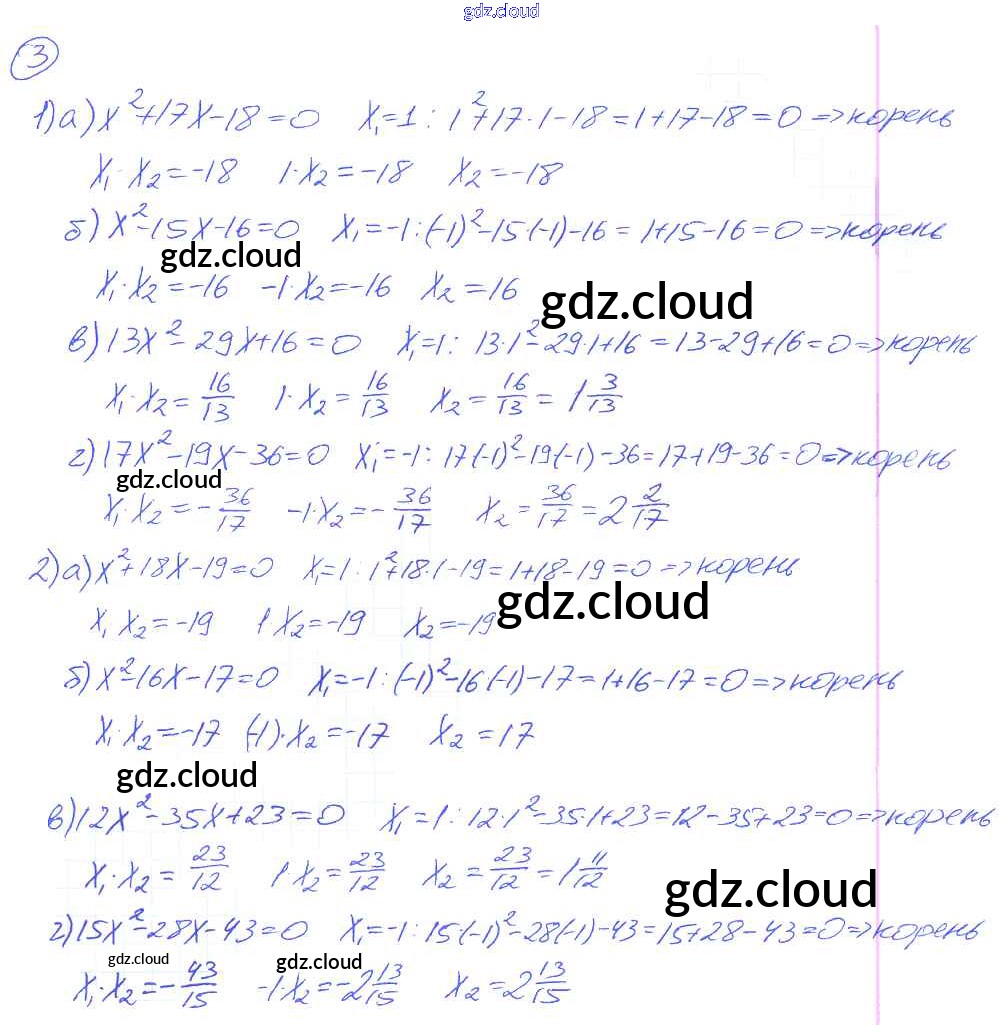 gdz.cloud
3
1) а) x²+17x-18=0 x₁=1: 1²+17·1-18=1+17-18=0=>корень
x₁·x₂=-18 1·x₂=-18 x₂=-18
б) x²-15x-16=0 x₁=-1: (-1)²-15·(-1)-16=1+15-16=0=>корень
gdz.cloud
x₁·x₂=-16 -1·x₂=-16 x₂=16
gdz.cloud
в) 13x²-29x+16=0 x₁=1: 13·1²-29·1+16=13-29+16=0=>корень
x₁·x₂=16/13 1·x₂=16/13 x₂=16/13=1 3/13
г) 17x²-19x-36=0 x₁=-1: 17(-1)²-19(-1)-36=17+19-36=0=>корень
gdz.cloud
x₁·x₂=-36/17 -1·x₂=-36/17 x₂=36/17=2 2/17
2) а) x²+18x-19=0 x₁=1: 1²+18·1-19=1+18-19=0=>корень
gdz.cloud
x₁ x₂=-19 1 x₂=-19 x₂=-19
б) x²-16x-17=0 x₁=-1: (-1)²-16(-1)-17=1+16-17=0=>корень
x₁·x₂=-17 (-1)·x₂=-17 x₂=17
gdz.cloud
в) 12x²-35x+23=0 x₁=1: 12·1²-35·1+23=12-35+23=0=>корень
x₁·x₂=23/12 1·x₂=23/12 x₂=23/12=1 11/12
gdz.cloud
г) 15x²-28x-43=0 x₁=-1: 15(-1)²-28(-1)-43=15+28-43=0=>корень
gdz.cloud gdz.cloud
x₁·x₂=-43/15 -1·x₂=-2 13/15 x₂=2 13/15